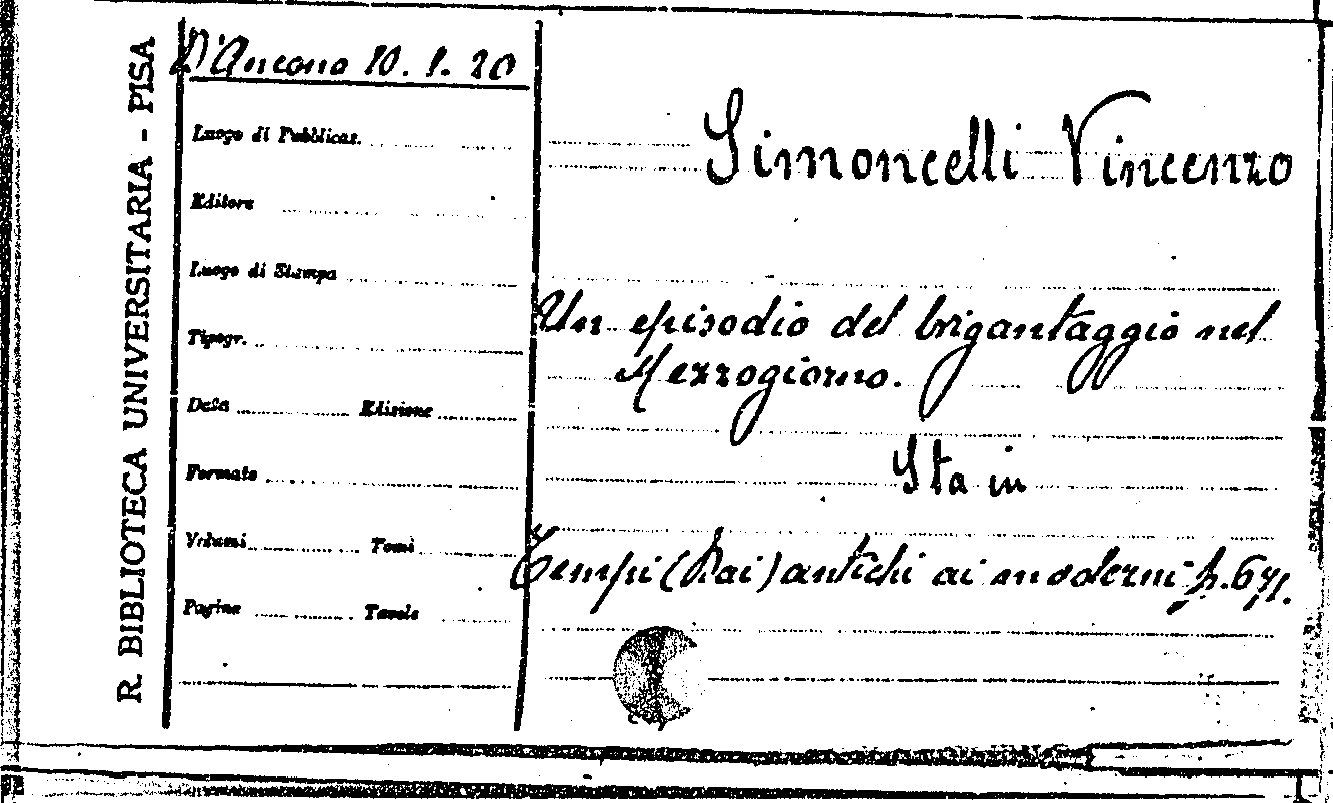 R. BIBLIOTECA UNIVERSITARIA - PISA
D'Ancona 10. 1. 20
Luogo di Pubblicaz.
Editore
Luogo di Stampa
Tipogr.
Data Edizione
Formato
Volumi Tomi
Pagine Tavole
Simoncelli Vincenzo
Un episodio del brigantaggio nel
Mezzogiorno.
Sta in
Tempi (Dai) antichi ai moderni p. 671.